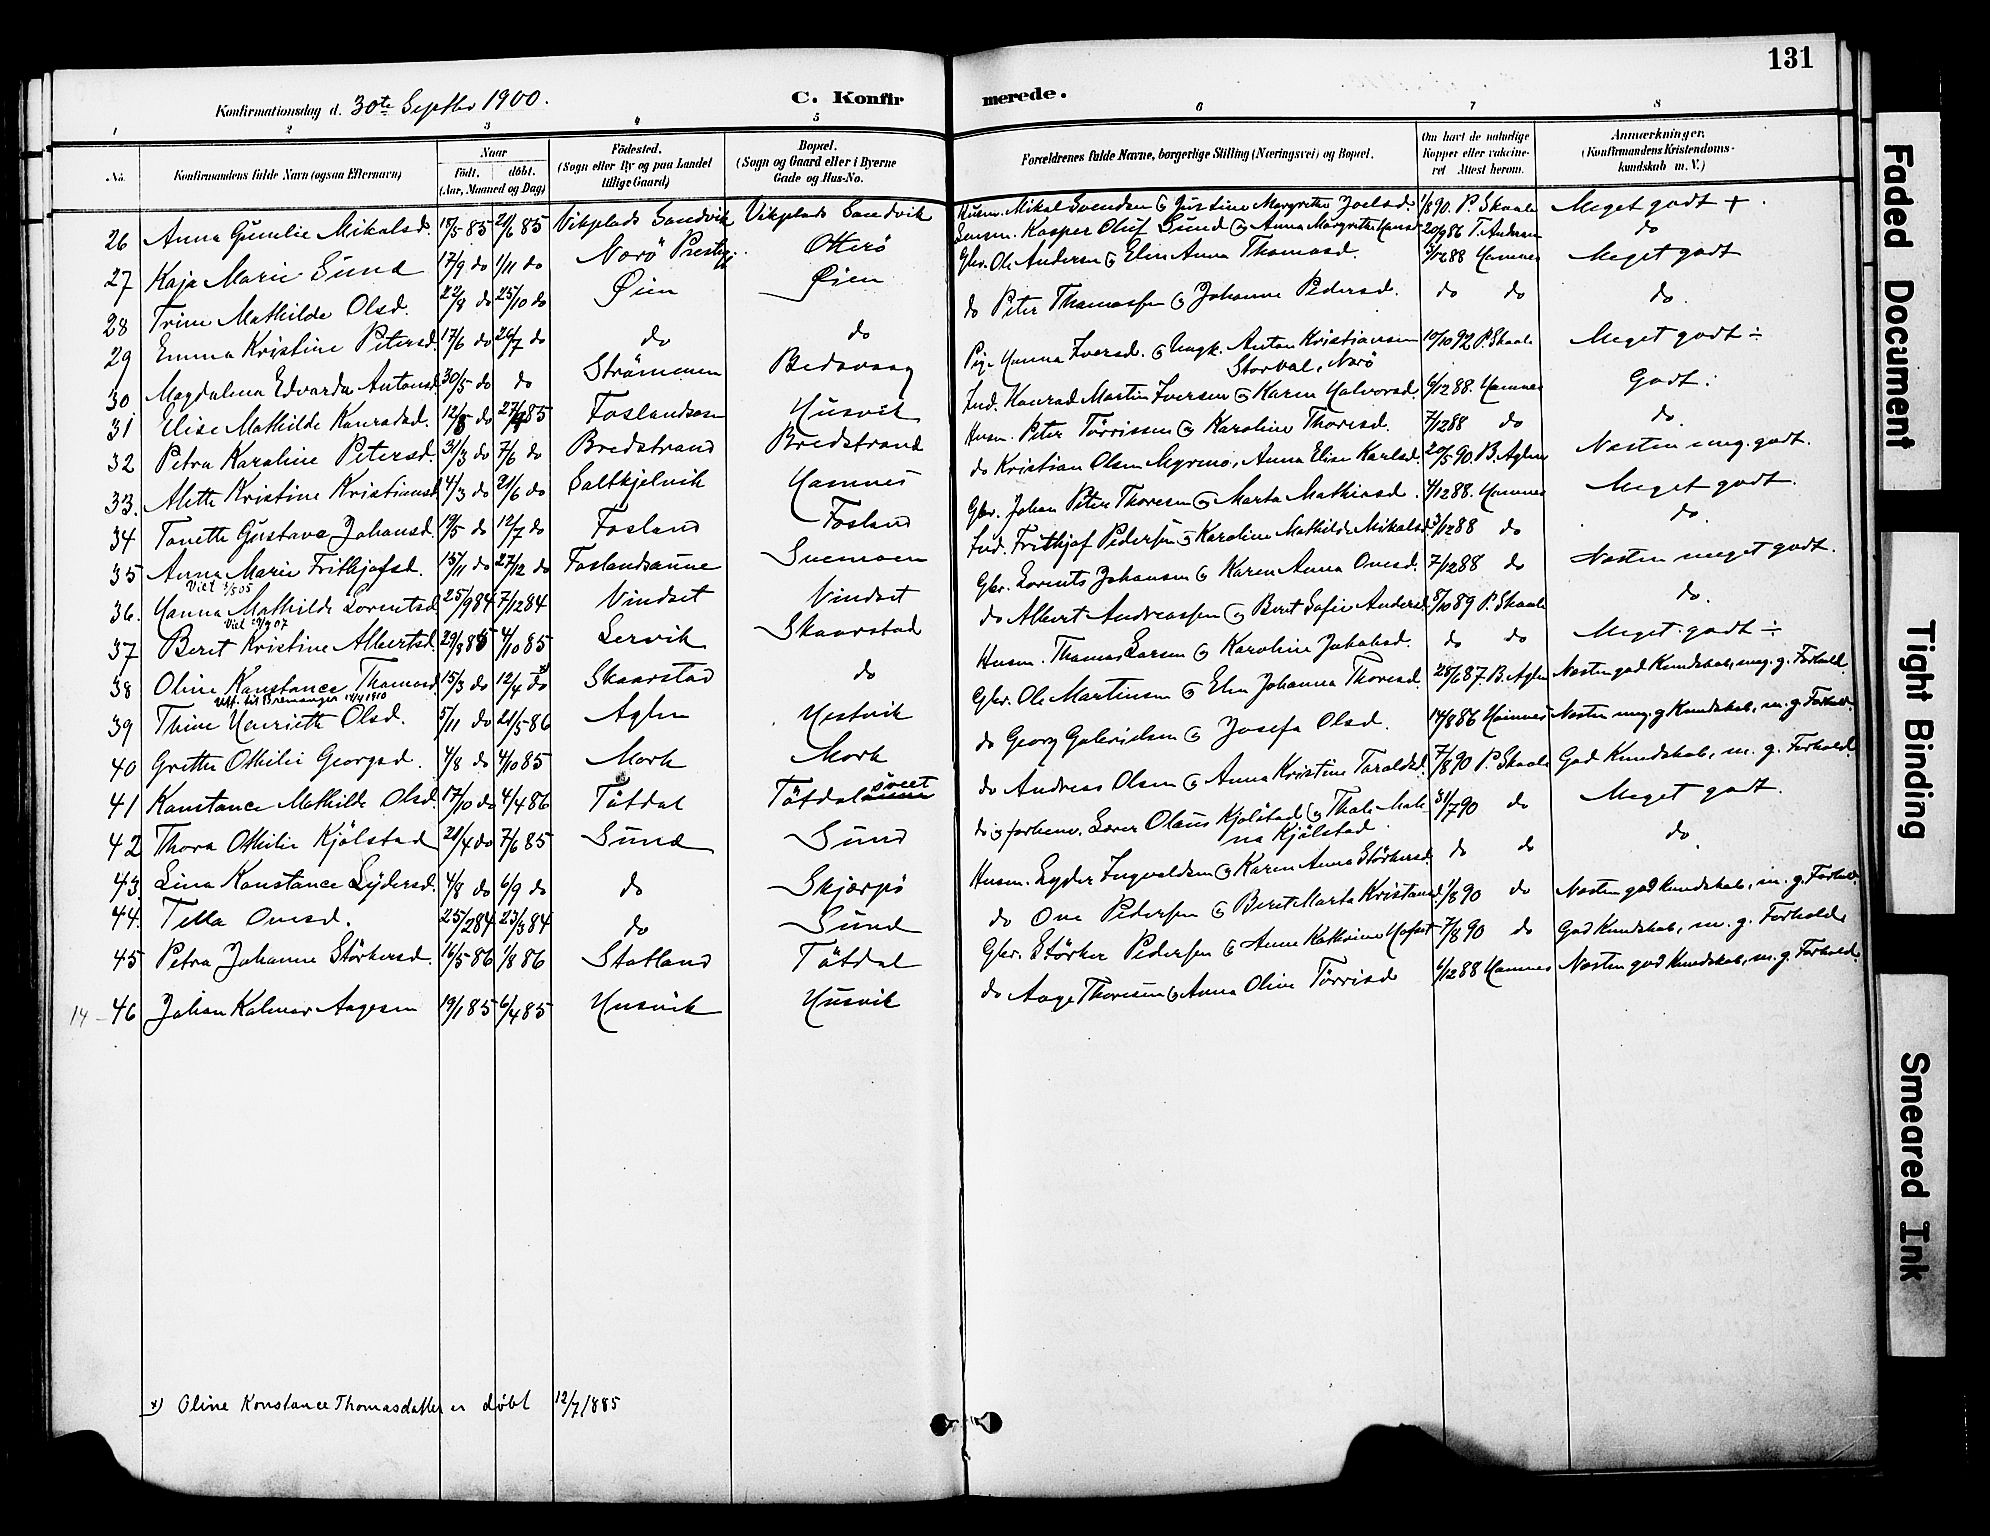 131
Konfirmationsdag d. 30te Septbr 1900.
C. Konfirmerede.
1 2 3 4 5 6 7 8
No.
Konfirmandens fulde Navn (ogsaa Efternavn)
Naar
födt. döbt.
(Aar, Maaned og Dag)
Födested.
(Sogn eller By og paa Landet
tillige Gaard)
Bopæl.
(Sogn og Gaard eller i Byerne
Gade og Hus-No.
Forældrenes fulde Navne, borgerlige Stilling (Næringsvei) og Bopæl.
Om havt de naturlige
Kopper eller vakcine-
ret Attest herom.
Anmærkninger.
(Konfirmandens Kristendoms-
kundskab m. V.)
26 Anna Gunelie Mikalsd. 15/5 85 21/6 85 Vikplads Sandvik Vikplads Sandvik Husm. Mikal Svendsen og Justine Margrethe Joelsd. 1/8 90. P. Skaale Meget godt +
27 Kaja Marie Sund 17/9 do 1/11 do Narö Prestegj. Otterö Lensm. Kasper Oluf Sund og Anna Margrethe 20/9 86 T. Andersen do
28 Trine Mathilde Olsd. 22/8 do 25/10 do Øien Øien Gbr. Ole Andersen og Elen Anna Thomasd. 3/12 88 Hamnes Meget godt
29 Emma Kristine Petersd. 17/6 do 26/7 do do do do Peter Thomassen og Johanne Pedersd. do do do.
30 Magdalena Edvarda Antonsd. 30/5 do do Strömmen Bedavaag Pige Hanna Iversd. og Ungk. Anton Kristiansen Storval, Narö 10/10 92 P. Skaale Meget godt ÷
31 Elise Mathilde Konradsd. 12/8 do 27/9 85 Foslandsosen Husvik Ind. Konrad Martin Iversen og Karen Halvorsd. 6/12 88. Hamnes Godt.
32 Petra Karoline Petersd. 31/3 do 7/6 do Bredstrand Bredstrand Husm. Peter Törrissen og Karoline Thoresd. 7/12 88 do do.
33. Mette Kristine Kristiansd. 4/3 do 21/6 do Saltkjelvik Hamnes do Kristian Olsen Myrmo, Anna Elise Karlsd. 20/5 90. B. Aglen Næsten meg. godt.
34 Tonette Gustava Johansd. 19/5 do 12/7 do Fosland Fosland Gbr. Johan Peter Thoresen og Marta Mathiasd. 4/12 88. Hamnes Meget godt.
35 Anna Marie Frithjofsd. 15/11 do 27/12 do Foslandsaune Snemoen Ind. Frithjof Pedersen og Karoline Mathilde Mikalsd. 3/12 88 do do.
Viet 7/5 05
36. Hanna Mathilde Lorentsd. 25/9 84 7/12 84 Vindset Vindset Gbr. Lorents Johansen og Karen Anna Onesd. 7/12 88 do Næsten meget godt.
37 Beret Kristine Albertsd. 29/8 85 4/10 85 Lervik Skaarstad do Albert Andreassen og Beret Sofie Andersd. 8/10 89 P. Skaale do.
38 Oline Konstance Thomasd. 15/3 do 12/4 do x) Skaarstad do Husm. Thomas Larsen og Karoline Jakobsd. do do Meget godt ÷
39 Thine Henriette Olsd. 5/11 do 24/5 86 Aglen Hestvik Gbr. Ole Martinsen og Elen Johanna Thoresd. 28/6 87. B. Aglen Næsten god Kundskab, meg. g. Forhold.
40 Grethe Othilie Georgsd. 4/8 do 4/10 85 Mork Mork do Georg Gabrielsen og Josefa Olsd. 14/8 86 Hamnes Næsten meg. g Kundskab, m. g. Forhold.
41 Konstance Mathilde Olsd. 17/10 do 4/4 86 Tötdal Tötdal sveet do Andreas Olsen og Anna Kristine Taraldsd. 7/8 90 P. Skaale God Kundskab, m. g. Forhold
42 Thora Othilie Kjölstad 21/4 do 7/6 85 Sund Sund do og forhenv. Lærer Olaus Kjölstad og Thale Malena Kjölstad. 31/7 90 do Meget godt.
43 Lina Konstance Lydersd. 4/8 do 6/9 do do Skjærpö Husm. Lyder Ingvaldsen og Karen Anna Störkersd. do do do.
44. Tella Onesd. 25/2 84 23/3 84 do Sund do One Pedersen og Beret Marta Kristiansd. 1/8 90 do Næsten god Kundskab, m. g. Forhold.
45 Petra Johanne Störkersd. 16/5 86 1/8 86 Statland Tötdal Gbr. Störker Pedersen og Anne Kathrine 7/8 90 do God Kundskab, m. g. Forhold.
14 – 46 Johan Kalmar Aagesen 19/1 85 6/4 85 Husvik Husvik do Aage Thoresen og Anna Oline Törrisd 6/12 88 Hamnes Næsten god Kundskab, m. g. Forhold.
x) Oline Konstance Thomasdatter er döbt 12/7 1885
Faded Document
Tight Binding
Smeared Ink